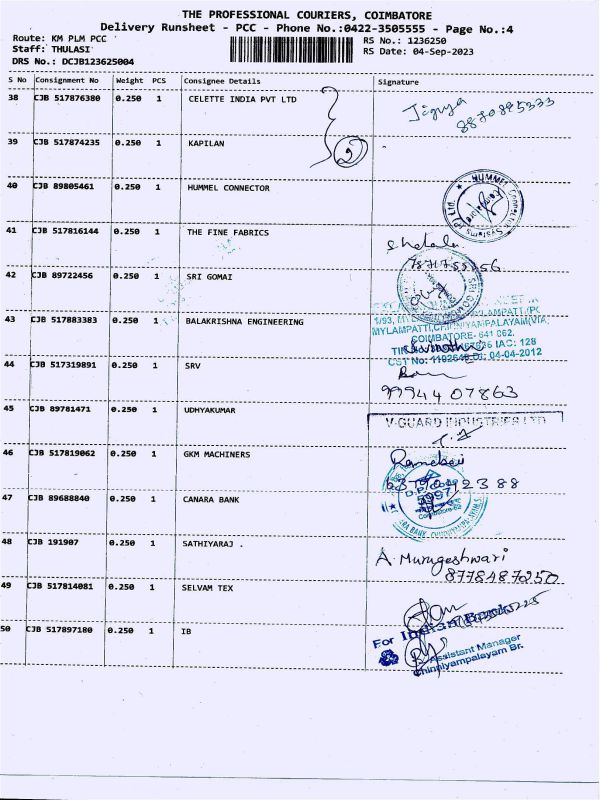 THE PROFESSIONAL COURIERS, COIMBATORE
Delivery Runsheet - PCC - Phone No.:0422-3505555 - Page No.:4
Route: KM PLM PCC
RS No.: 1236250
Staff: THULASI
RS Date: 04-Sep-2023
DRS No.: DCJB123625004
S No Consignment No Weight PCS Consignee Details Signature
38 CJB 517876380 0.250 1 CELETTE INDIA PVT LTD
8870895333
39 CJB 517874235 0.250 1 KAPILAN
2
40 CJB 89805461 0.250 1 HUMMEL CONNECTOR
HUMMEL
41 CJB 517816144 0.250 1 THE FINE FABRICS
42 CJB 89722456 0.250 1 SRI GOMAI
43 CJB 517883383 0.250 1 BALAKRISHNA ENGINEERING
MYLAMPATTI,CHINNIYAMPALAYAM(VIA)
COIMBATORE- 641 062.
IAC: 128
Dt: 04-04-2012
44 CJB 517319891 0.250 1 SRV
9994407863
45 CJB 89781471 0.250 1 UDHYAKUMAR
V-GUARD INDUSTRIES LTD
46 CJB 517819062 0.250 1 GKM MACHINERS
47 CJB 89688840 0.250 1 CANARA BANK
48 CJB 191907 0.250 1 SATHIYARAJ .
A. Murugeshwari
8778487250
49 CJB 517814081 0.250 1 SELVAM TEX
50 CJB 517897180 0.250 1 IB
For Indian Bank
Assistant Manager
Chinniyampalayam Br.